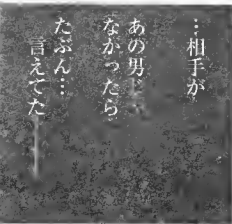 …相手が
あの男じ…
なかったら
たぶん…
言えてた